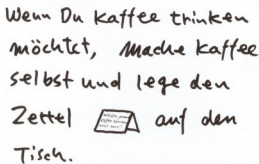 Wenn Du Kaffee trinken
möchtet, mache Kaffee
selbst und lege den
Zettel auf den
Tisch.